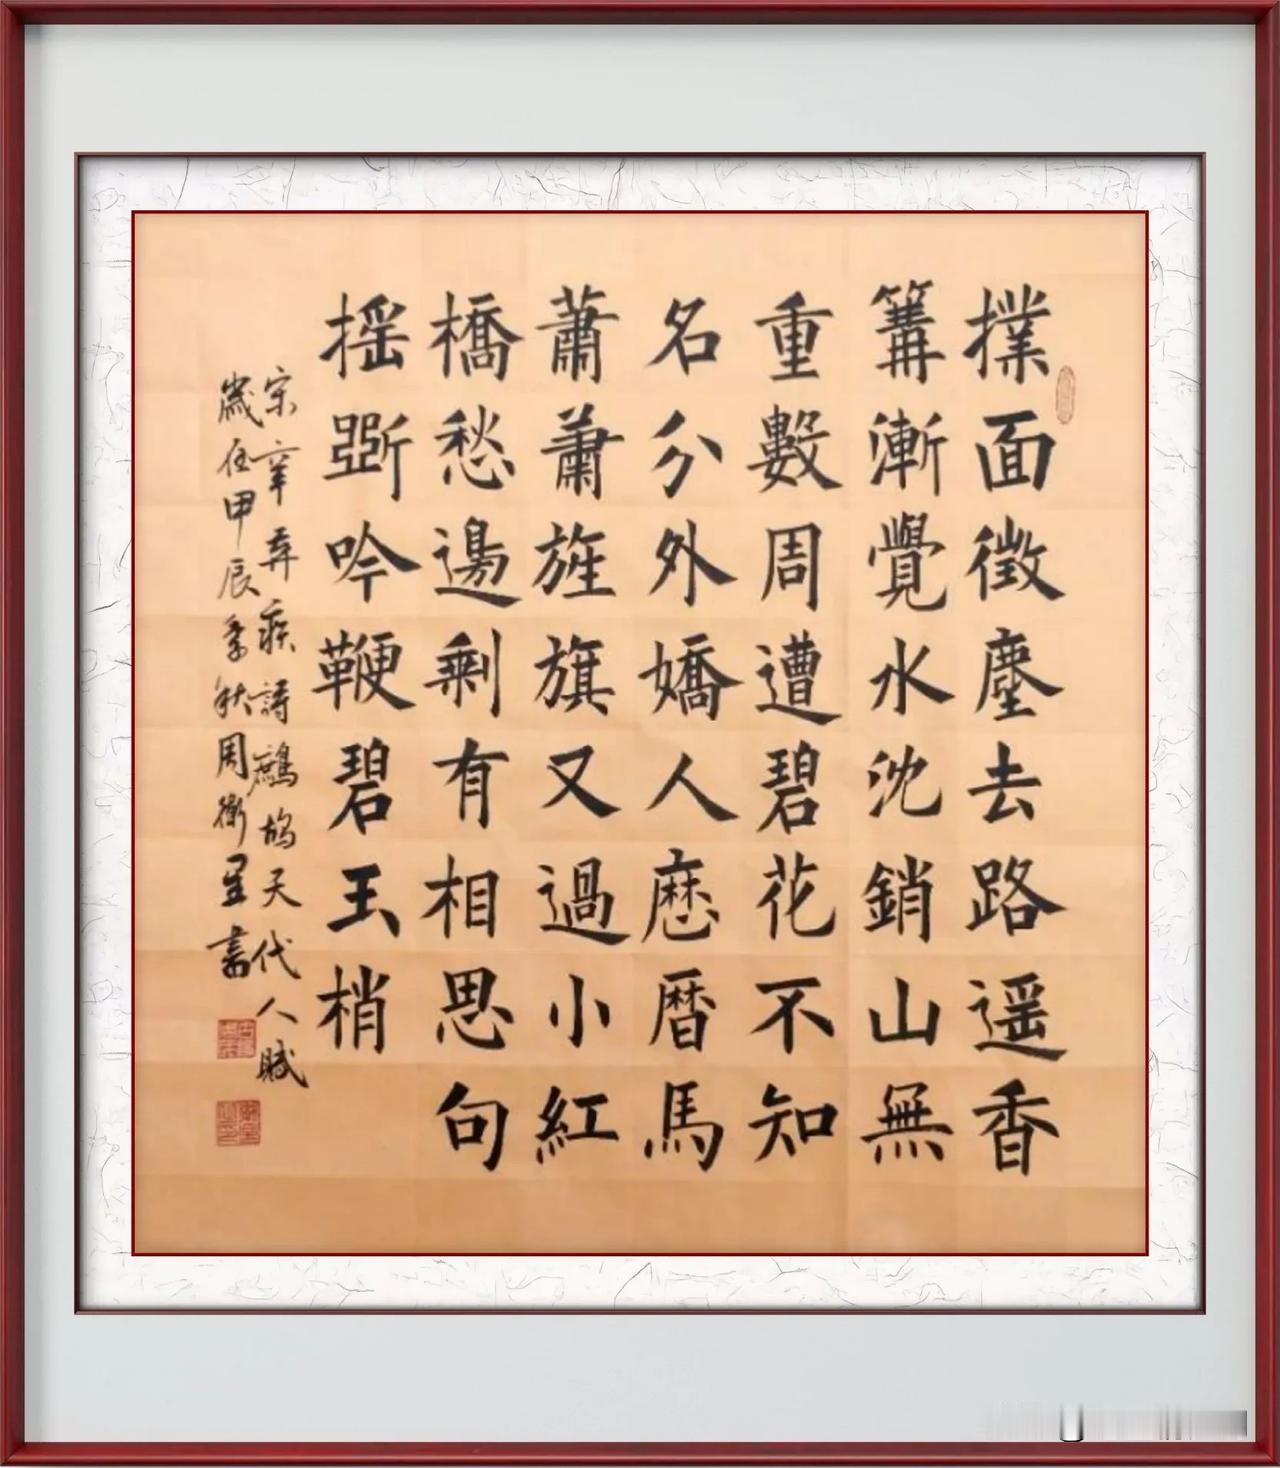 撲面徵塵去路遥香
篝漸覺水沈銷山無
重數周遭碧花不知
名分外嬌人歷暦馬
蕭蕭旌旗又過小紅
橋愁邊剩有相思句
摇斷吟鞭碧玉梢
宋辛弃疾詩鷓鴣天代人賦
歲在甲辰季秋周衛星書